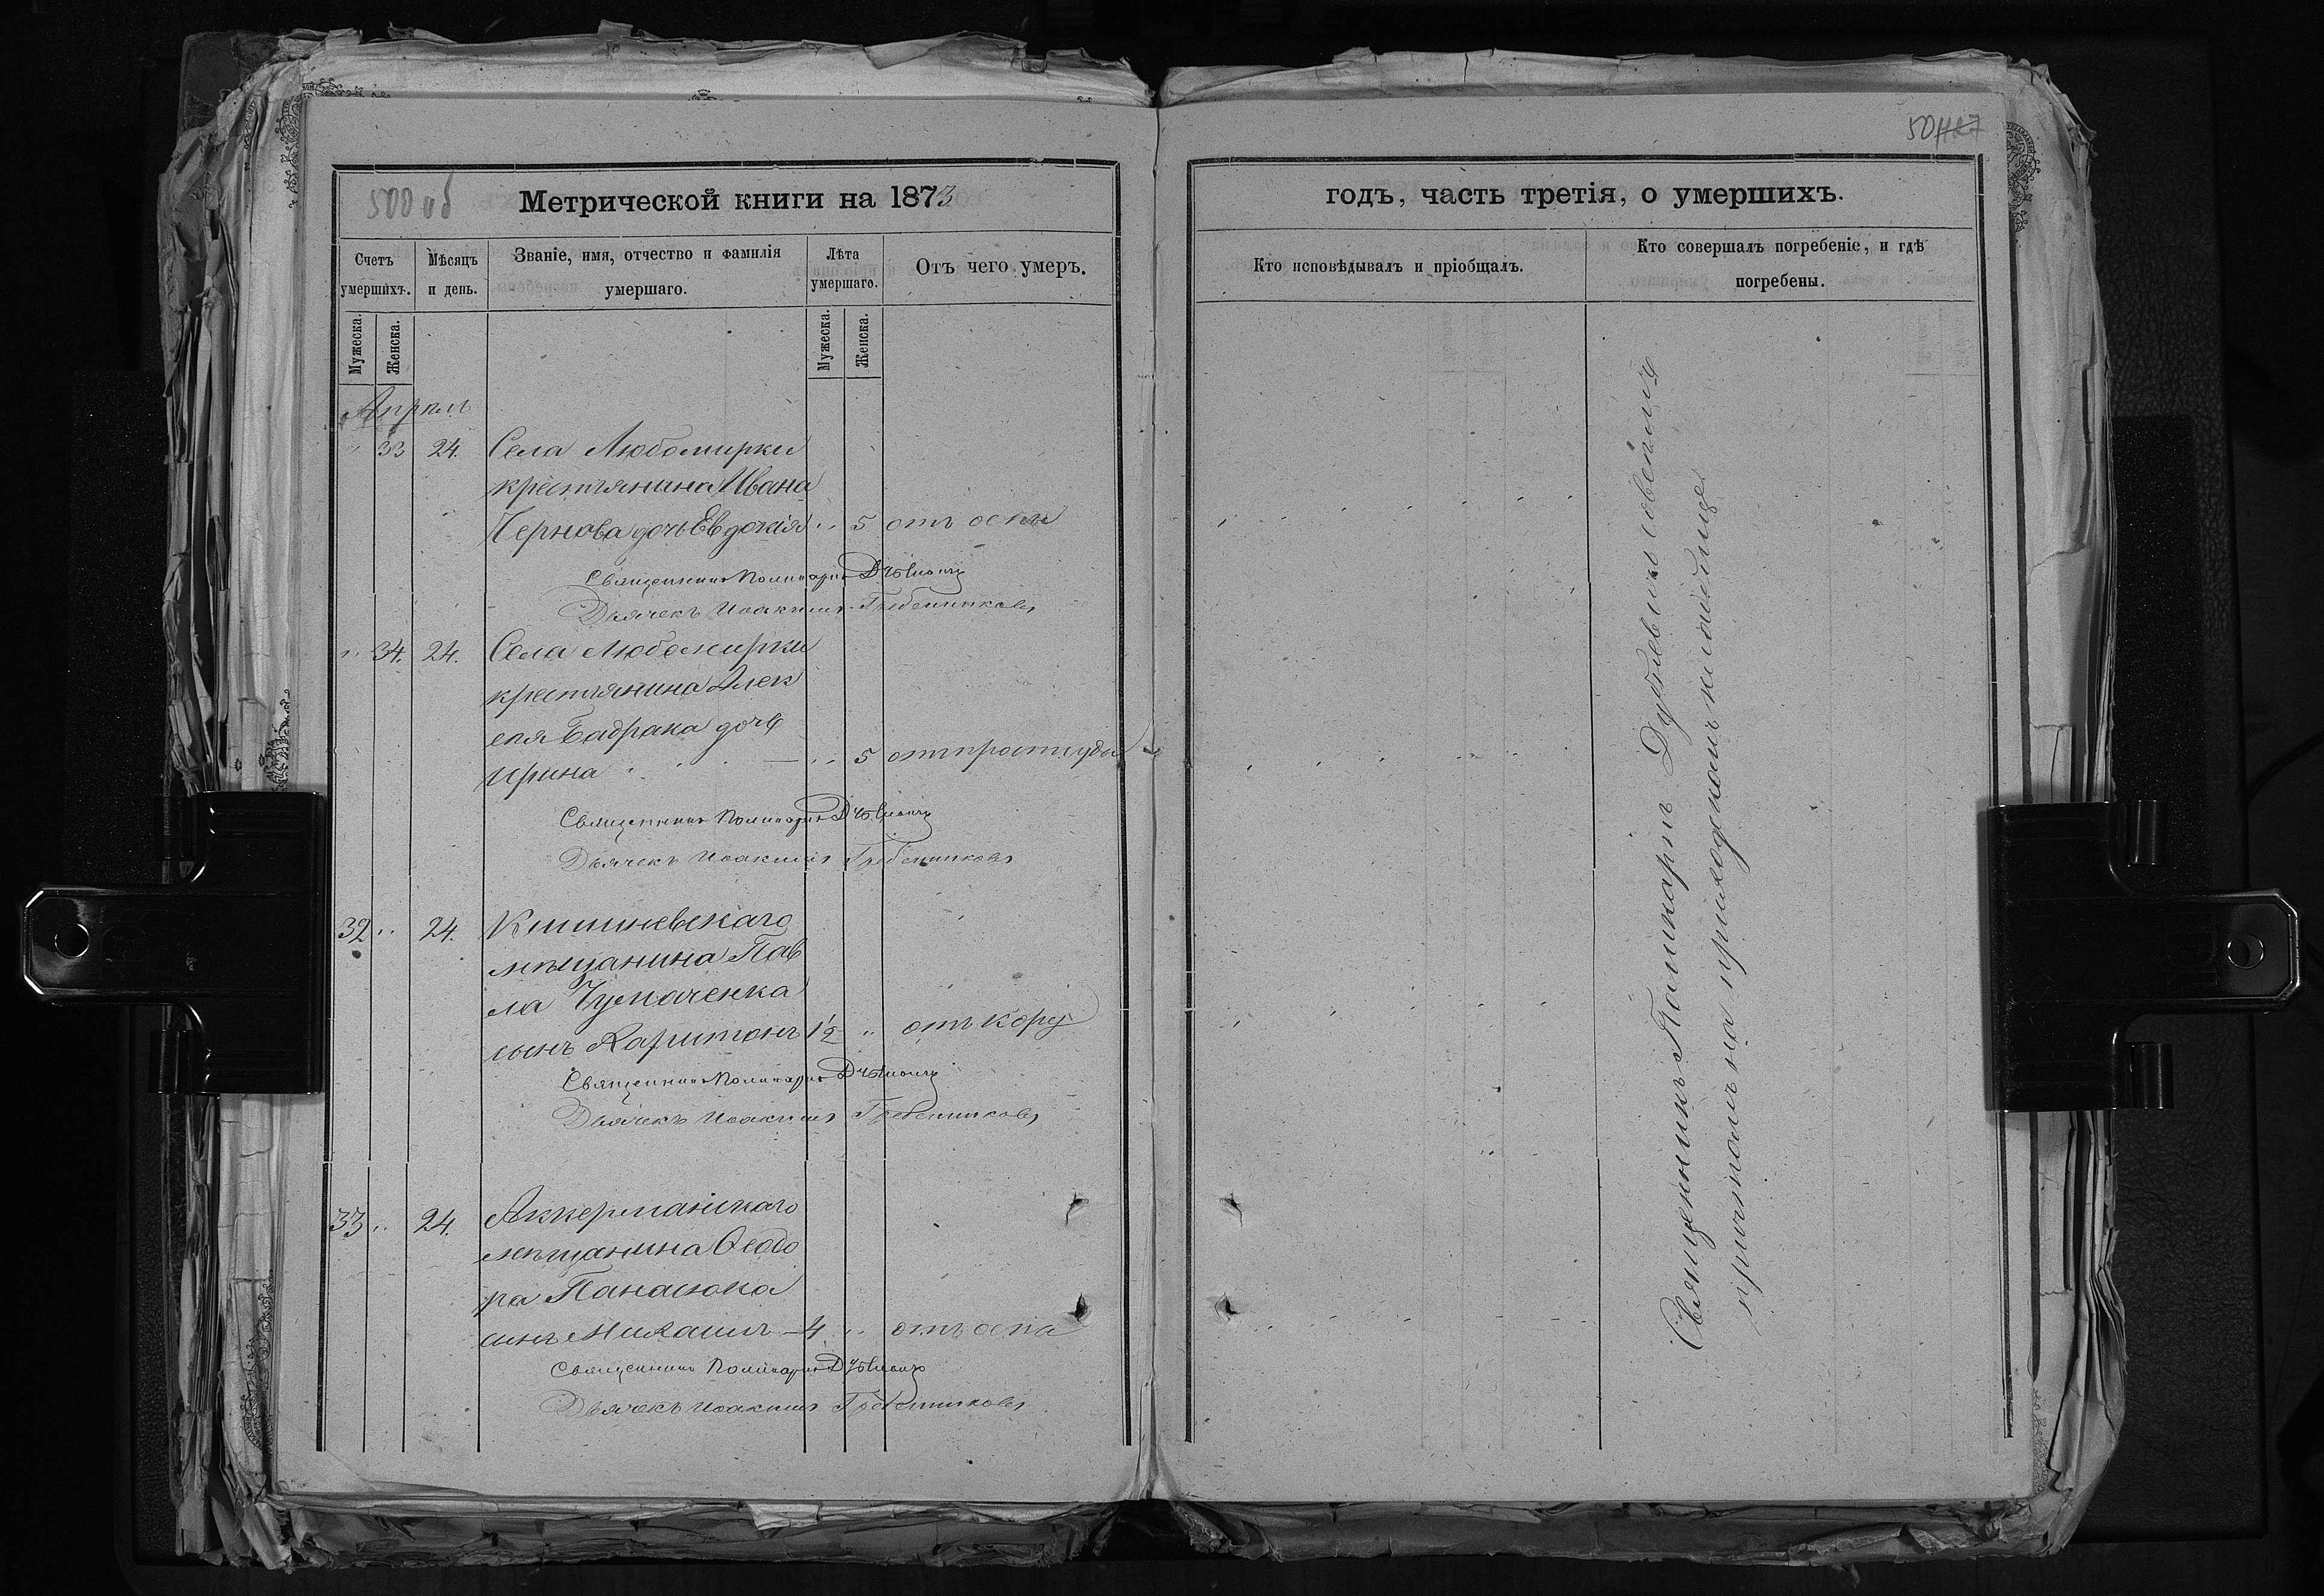 500 об
Метрической книги на 1873
Счетъ умершихъ.
Мѣсяцъ и день.
Званіе, имя, отчество и фамилія умершаго.
Лѣта умершаго.
Отъ чего умеръ.
Мужеска.
Женска.
Мужеска.
Женска.
Апрель
" 33 24. Села Любомирки
крестьянина Ивана
Чернова дочь Евдокія " 5 отъ оспы
Священникъ Поликарпъ
Дьячекъ Иоакимъ Гребенниковъ
" 34. 24. Села Любомирки
крестьянина Алек
сея Бадрака дочь
Ирина " 5 отъ простуды
Священникъ Поликарпъ
Дьячекъ Иоакимъ Гребенниковъ
32 " 24. Кишиневскаго
мѣщанина Пав
ла Чумаченка
сынъ Харитонъ 1½ " отъ кору
Священникъ Поликарпъ
Дьячекъ Иоакимъ Гребенниковъ
33 " 24. Аккерманскаго
мѣщанина Ѳеодо
ра Панасюка
сынъ Михаилъ 4 " отъ оспа
Священникъ Поликарпъ
Дьячекъ Иоакимъ Гребенниковъ
годъ, часть третія, о умершихъ.
Кто исповѣдывалъ и пріобщалъ.
Кто совершалъ погребеніе, и гдѣ
погребены.
Священникъ Поликарпъ
причтомъ на приходскомъ кладбище